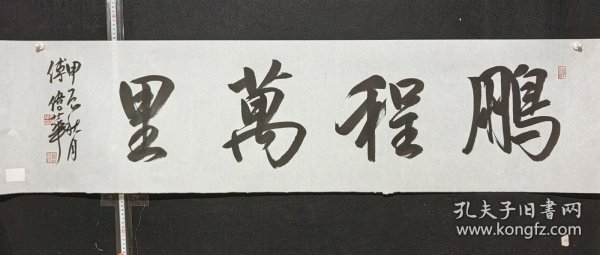 鹏程萬里
甲辰秋月
孔夫子旧書网
www.kongfz.com